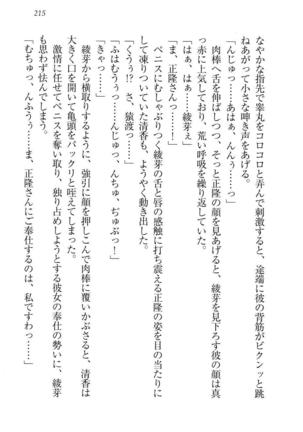 215
なやかな指先で睾丸をコロコロと弄んで刺激すると、途端に彼の背筋がビクンッと跳
ねあがって小さな呻き声をあげる。
「んじゅっ……あはぁ、んんぅ……っ」
肉棒へ舌を伸ばしつつ、そっと正隆の顔を見あげると、綾芽を見下ろす彼の顔は真
っ赤に上気しており、荒い呼吸を繰り返していた。
「はぁ、はぁ……綾芽ぇ」
「ま、正隆さん……」
ペニスにむしゃぶりつく綾芽の舌と唇の感触に打ち震える正隆の姿を目の当たりに
して凍りついていた清香も、ようやく動き出した。
「くうぅ!? さ、猿渡……っ」
「ふはむうぅっ……じゅっ、んちゅ、ぢゅぶっ!」
「きゃっ……」
綾芽から横取りするように、強引に顔を押しこんで肉棒に覆いかぶさると、清香は
大きく口を開いて亀頭をパックリと咥えてしまう。
激情に任せてペニスを奪い取り、独り占めしようとする彼女の奉仕の勢いに、綾芽
も思わず怯んでしまった。
「むちゅっ、んふうぅっ……ま、正隆さんにご奉仕するのは、私ですわっ……」